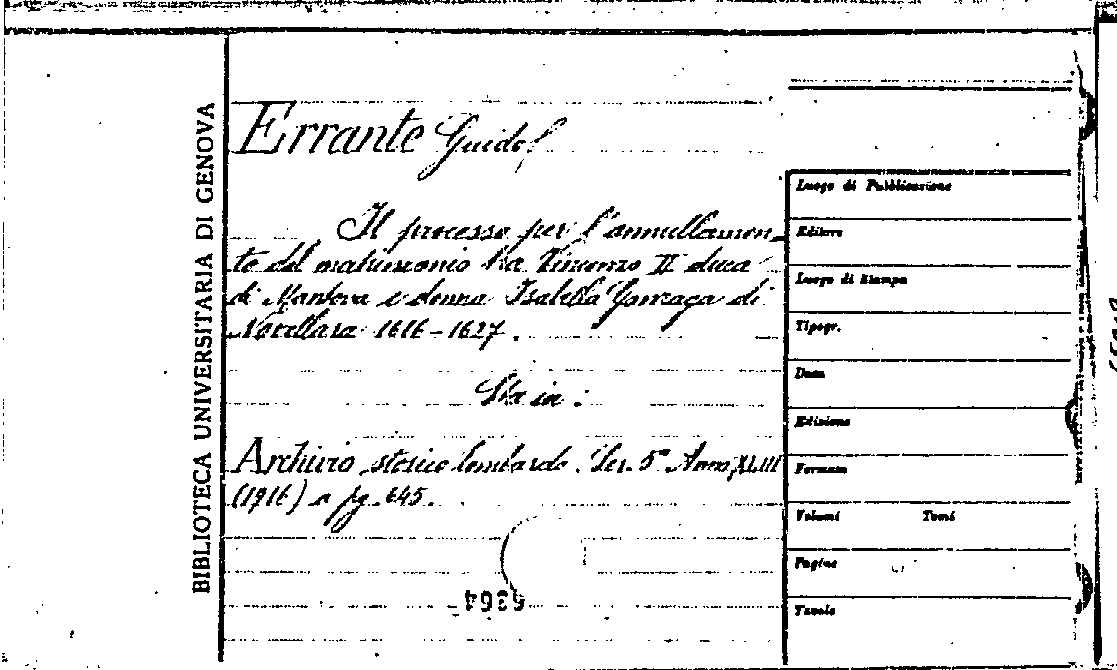 BIBLIOTECA UNIVERSITARIA DI GENOVA
Errante Guido
Il processo per l'annullamen-
to del matrimonio tra Vincenzo II duca
di Mantova e donna Isabella Gonzaga di
Novellara 1616-1627.
Sta in:
Archivio storico lombardo. Ser. 5ª Anno XLIII
(1916) a pg. 645.
6364
Luogo di Pubblicazione
Editore
Luogo di Stampa
Tipogr.
Data
Edizione
Formato
Volumi Tomi
Pagine
Tavole